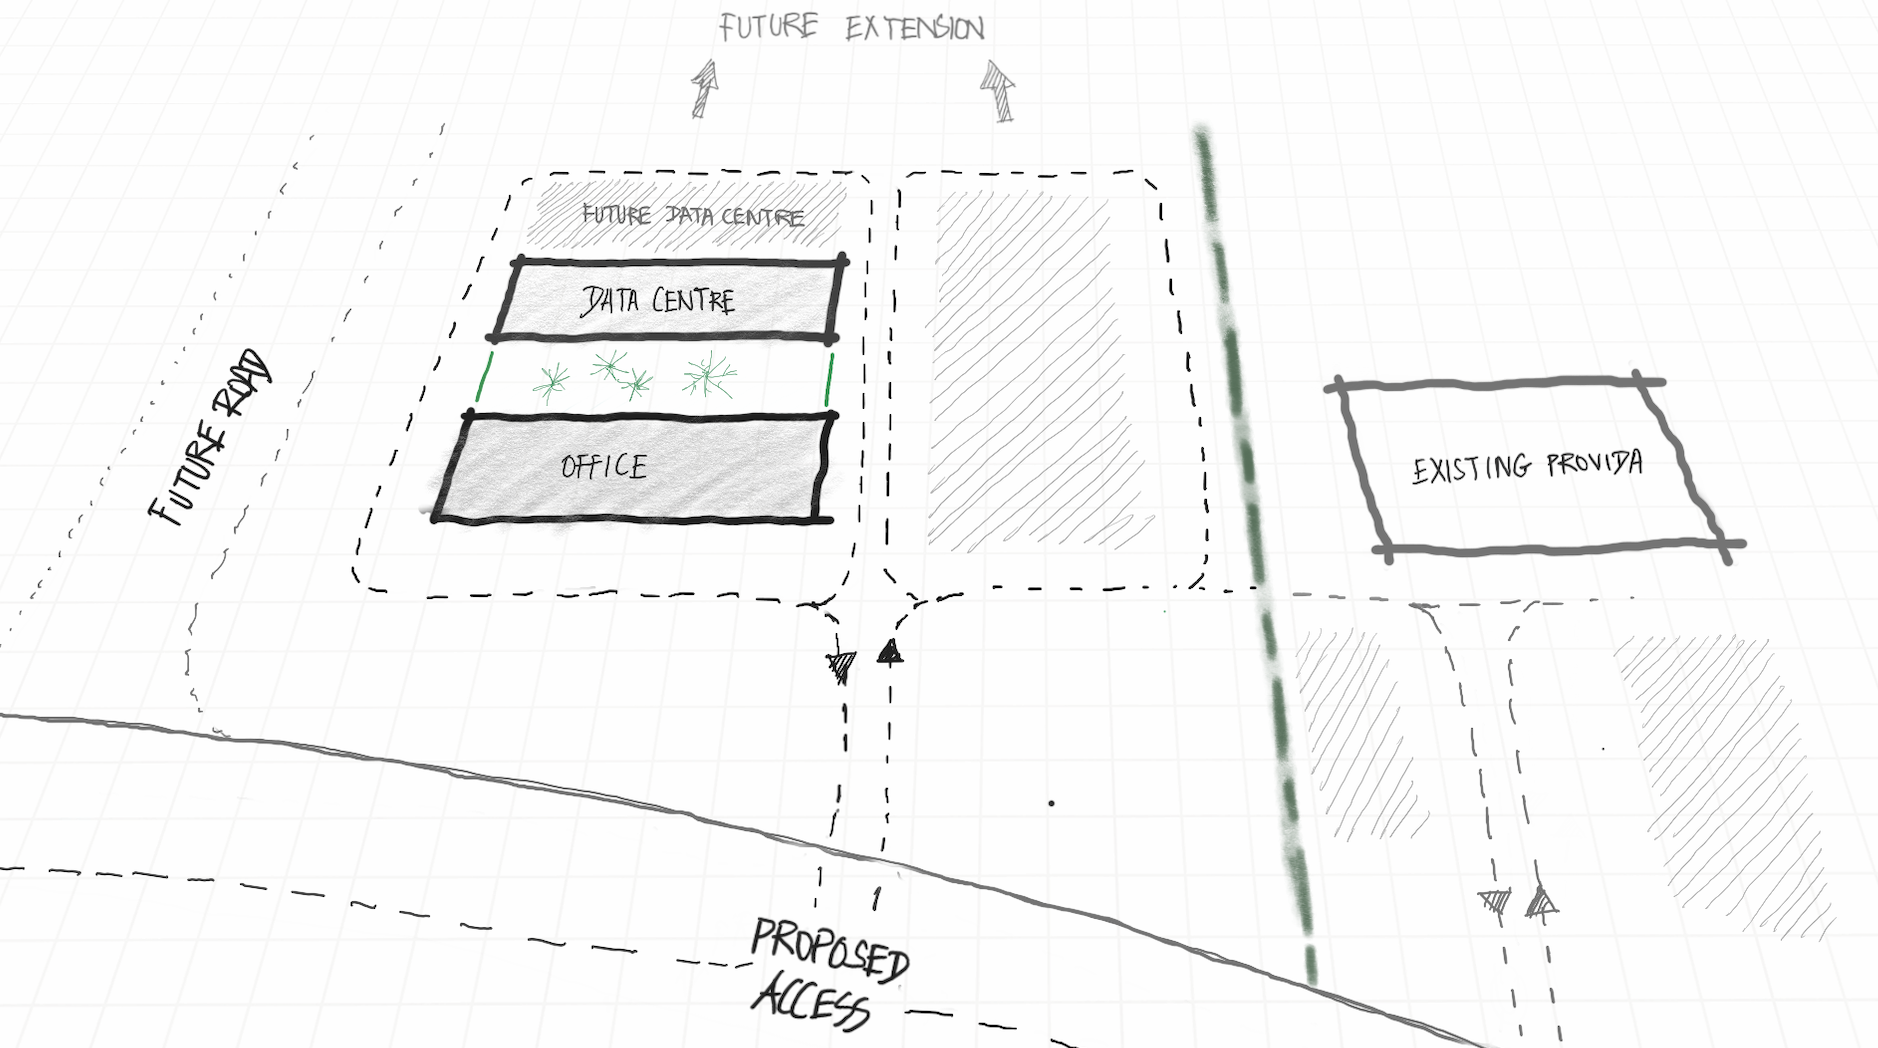 FUTURE EXTENSION
FUTURE DATA CENTRE
DATA CENTRE
FUTURE ROAD
OFFICE
EXISTING PROVIDA
PROPOSED
ACCESS